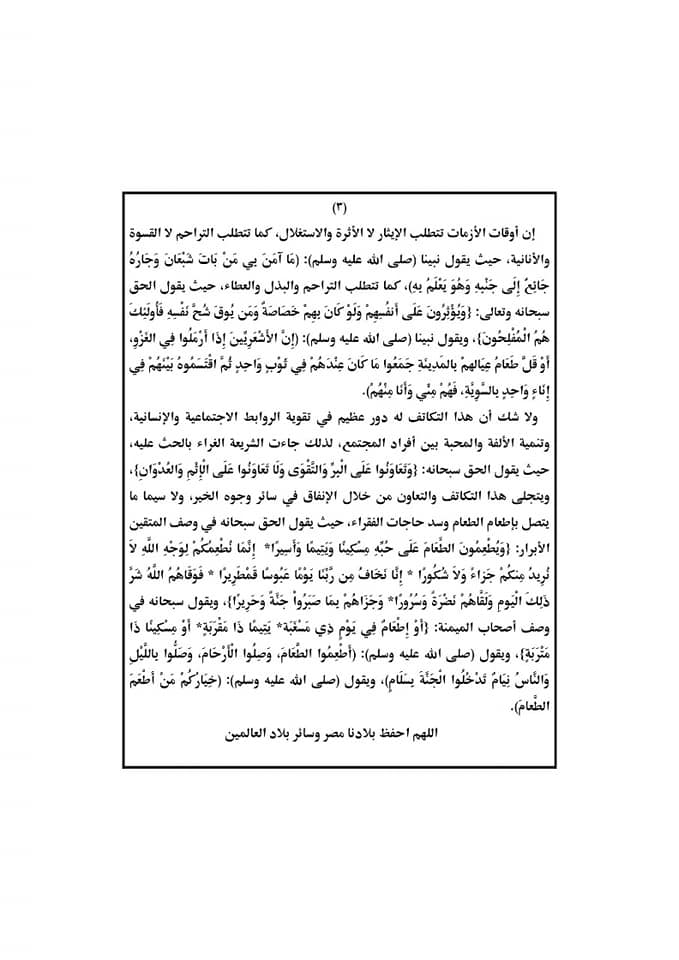 (٣)
إن أوقات الأزمات تتطلب الإيثار لا الأثرة والاستغلال، كما تتطلب التراحم لا القسوة
والأنانية، حيث يقول نبينا (صلى الله عليه وسلم): (مَا آمَنَ بِي مَنْ بَاتَ شَبْعَانَ وَجَارُهُ
جَائِعٌ إِلَى جَنْبِهِ وَهُوَ يَعْلَمُ بِهِ)، كما تتطلب التراحم والبذل والعطاء، حيث يقول الحق
سبحانه وتعالى: {وَيُؤْثِرُونَ عَلَى أَنفُسِهِمْ وَلَوْ كَانَ بِهِمْ خَصَاصَةٌ وَمَن يُوقَ شُحَّ نَفْسِهِ فَأُولَئِكَ
هُمُ الْمُفْلِحُونَ}، ويقول نبينا (صلى الله عليه وسلم): (إِنَّ الأَشْعَرِيِّينَ إِذَا أَرْمَلُوا فِي الغَزْوِ،
أَوْ قَلَّ طَعَامُ عِيَالِهِمْ بِالْمَدِينَةِ جَمَعُوا مَا كَانَ عِنْدَهُمْ فِي ثَوْبٍ وَاحِدٍ ثُمَّ اقْتَسَمُوهُ بَيْنَهُمْ فِي
إِنَاءٍ وَاحِدٍ بِالسَّوِيَّةِ، فَهُمْ مِنِّي وَأَنَا مِنْهُمْ).
ولا شك أن هذا التكاتف له دور عظيم في تقوية الروابط الاجتماعية والإنسانية،
وتنمية الألفة والمحبة بين أفراد المجتمع، لذلك جاءت الشريعة الغراء بالحث عليه،
حيث يقول الحق سبحانه: {وَتَعَاوَنُوا عَلَى الْبِرِّ وَالتَّقْوَى وَلَا تَعَاوَنُوا عَلَى الْإِثْمِ وَالْعُدْوَانِ}،
ويتجلى هذا التكاتف والتعاون من خلال الإنفاق في سائر وجوه الخير، ولا سيما ما
يتصل بإطعام الطعام وسد حاجات الفقراء، حيث يقول الحق سبحانه في وصف المتقين
الأبرار: {وَيُطْعِمُونَ الطَّعَامَ عَلَى حُبِّهِ مِسْكِينًا وَيَتِيمًا وَأَسِيرًا* إِنَّمَا نُطْعِمُكُمْ لِوَجْهِ اللَّهِ لاَ
نُرِيدُ مِنكُمْ جَزَاءً وَلاَ شُكُورًا * إِنَّا نَخَافُ مِن رَّبِّنَا يَوْمًا عَبُوسًا قَمْطَرِيرًا * فَوَقَاهُمُ اللَّهُ شَرَّ
ذَلِكَ الْيَوْمِ وَلَقَّاهُمْ نَضْرَةً وَسُرُورًا* وَجَزَاهُمْ بِمَا صَبَرُواْ جَنَّةً وَحَرِيرًا}، ويقول سبحانه في
وصف أصحاب الميمنة: {أَوْ إِطْعَامٌ فِي يَوْمٍ ذِي مَسْغَبَة* يَتِيمًا ذَا مَقْرَبَةٍ* أَوْ مِسْكِينًا ذَا
مَتْرَبَةٍ}، ويقول (صلى الله عليه وسلم): (أَطْعِمُوا الطَّعَامَ، وَصِلُوا الْأَرْحَامَ، وَصَلُّوا بِاللَّيْلِ
وَالنَّاسُ نِيَامٌ تَدْخُلُوا الْجَنَّةَ بِسَلَامٍ)، ويقول (صلى الله عليه وسلم): (خِيَارُكُمْ مَنْ أَطْعَمَ
الطَّعَامَ).
اللهم احفظ بلادنا مصر وسائر بلاد العالمين